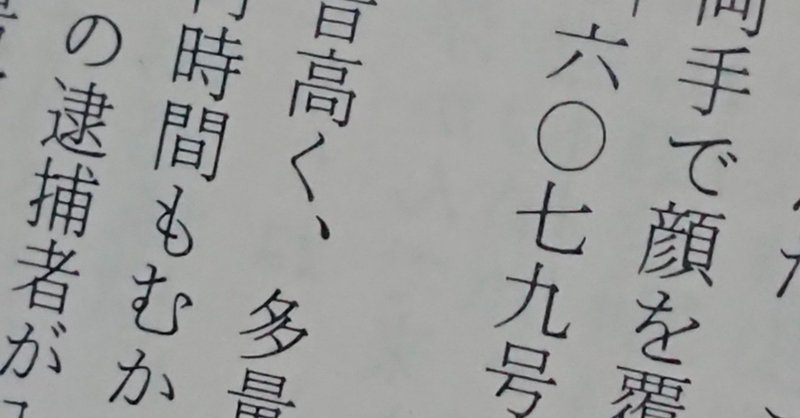 両手で顔を覆
六〇七九号
音高く、多量
時間もむか
の逮捕者が